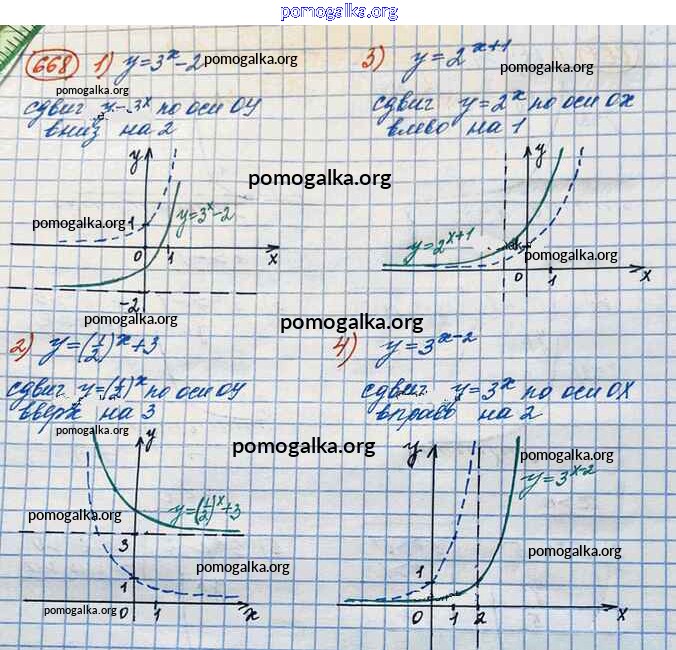 pomogalka.org
668 1) y=3ˣ-2 pomogalka.org
pomogalka.org
сдвиг y=3ˣ по оси OY
вниз на 2
y
pomogalka.org
1
y=3ˣ-2
0 1 x
-2
3) y=2ˣ⁺¹
pomogalka.org
сдвиг y=2ˣ по оси OX
влево на 1
pomogalka.org
y
y=2ˣ⁺¹
pomogalka.org
0 1 x
pomogalka.org
pomogalka.org
2) y=(1/2)ˣ+3
сдвиг y=(1/2)ˣ по оси OY
вверх на 3
pomogalka.org
pomogalka.org
y
y=(1/2)ˣ+3
pomogalka.org
3
pomogalka.org
1
pomogalka.org
0 1 x
4) y=3ˣ⁻²
сдвиг y=3ˣ по оси OX
вправо на 2
pomogalka.org
y
pomogalka.org
y=3ˣ⁻²
pomogalka.org
1
0 1 2 x